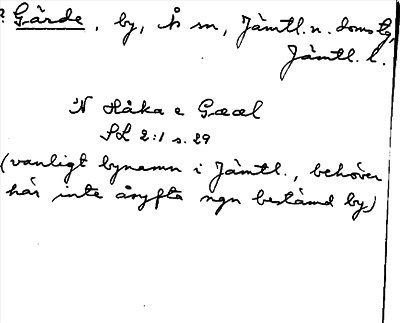 ? Gärde, by, Ås sn, Jämtl. n. doms lg,
Jämtl. l.
N Håka e Gææl
SL 2:1 s. 29
(vanligt bynamn i Jämtl., behöver
här inte åsyfta ngn bestämd by)